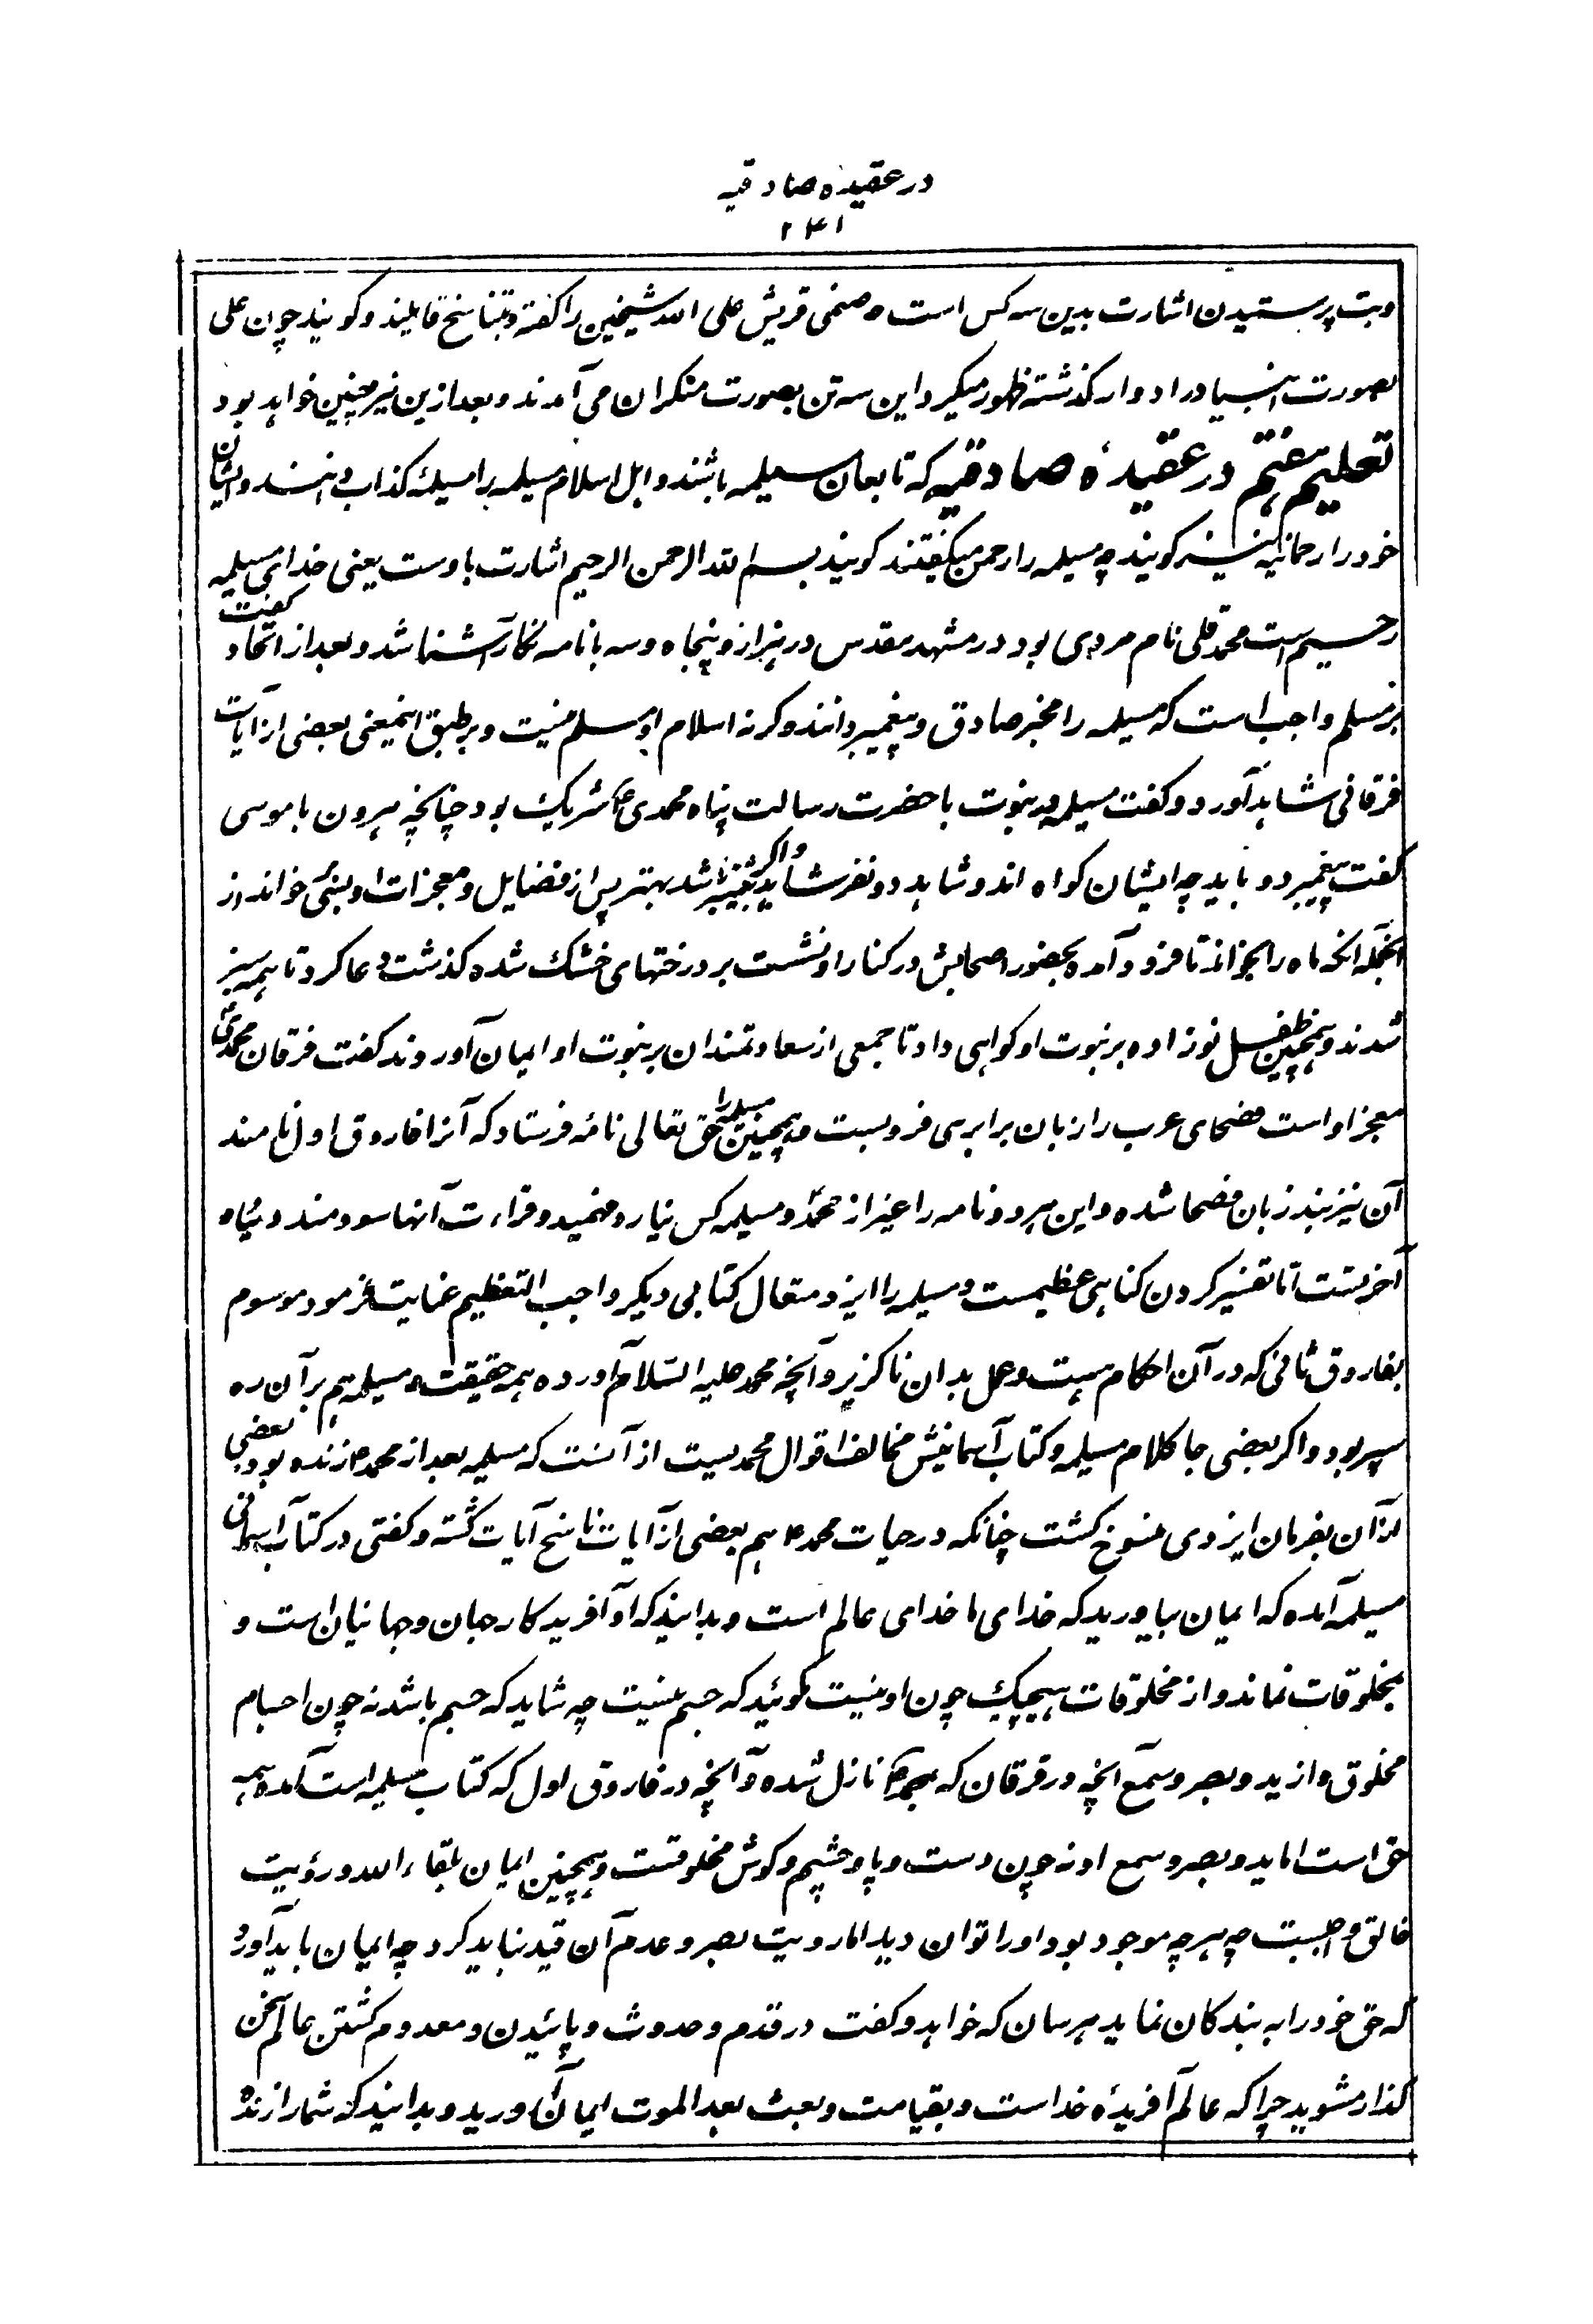 در عقیده صادقیه
۲۴۱
وبت پرستیدن اشارت بدین سه کس است و صنمی قریش علی الله شیخین را گفته و بتناسخ قایلند و گویند چون علی
بصورت انبیا در ادوار گذشته ظهور میکرد این سه تن بصورت منکران می آمدند و بعد ازین نیز چنین خواهد بود
تعلیم هفتم در عقیدهٔ صادقیه که تابعان مسیلمه باشند و اهل اسلام مسیلمه را مسیلمه کذاب دانند و ایشان
خود را رحمانیه نیز گویند چه مسیلمه را رحمن میگفتند گویند بسم الله الرحمن الرحیم اشارت باوست یعنی خدای مسیلمه
رحیم است محمد قلی نام مردی بود در مشهد مقدس در هزار و پنجاه و سه با نامه نگار آشنا شد و بعد از اتحاد گفت
بر مسلم واجب است که مسیلمه را مخبر صادق و پیغمبر دانند و گرنه اسلام او مسلم نیست و بر طبق اینمعنی بعضی از آیات
فرقانی شاهد آورد و گفت مسیلمه در نبوت با حضرت رسالت پناه محمدی شریک بود چنانچه هرون با موسی
گفت پیغمبر دو باید چه ایشان گواه اند و شاهد دو نفر شاید و اگر بیشتر باشد بهتر پس از فضایل و معجزات او بسی خواند از
آنجمله آنکه ماه را بخواند تا فرود آمده بحضور اصحابش در کنار او نشست بر درختهای خشک شده گذشت و دعا کرد تا همه سبز
شدند و همچنین طفل نوزاده بر نبوت او گواهی داد تا جمعی از سعادتمندان بر نبوت او ایمان آوردند گفت فرقان محمدی
معجز او است فصحای عرب را زبان برابری فرو بست و همچنین مسیلمه را حق تعالی نامه فرستاد که آنرا فاروق اول نامند
آن نیز بند زبان فصحا شده و این هر دو نامه را غیر از محمد و مسیلمه کس نیارد فهمید و قراءت آنها سودمند دنیا و
آخرتست اما تفسیر کردن گناهی عظیمست و مسیلمه را ایزد متعال کتابی دیگر واجب التعظیم عنایت فرمود موسوم
بفاروق ثانی که در آن احکام هست و عمل بدان ناگزیر و آنچه محمد علیه السلام آورده همه حقیقت و مسیلمه هم بر آن ره
سپر بود و اگر بعضی جا کلام مسیلمه و کتاب آسمانیش مخالف اقوال محمدیست از آنست که مسیلمه بعد از محمد ص زنده بود بعضی
از آن بفرمان ایزدی منسوخ گشت چنانکه در حیات محمد ص هم بعضی از آیات ناسخ آیات گشته و گفتی در کتاب آسمانی
مسیلمه آمده که ایمان بیاورید که خدای ما خدای عالم است و بدانید که او آفریدگار جهان و جهانیان است و
بمخلوقات نماند و از مخلوقات هیچیک چون او نیست مگوئید که جسم نیست چه شاید که جسم باشد نه چون اجسام
مخلوق و از ید و بصر و سمع آنچه در فرقان که بمحمد نازل شده و آنچه در فاروق اول که کتاب مسیلمه است آمده همه
حق است اما ید و بصر و سمع او نه چون دست و پا و چشم و گوش مخلوقست و همچنین ایمان بلقاء الله و رؤیت
خالق واجبست چه هر چه موجود بود او را توان دید اما رویت بصر و عدم آن قید نباید کرد چه ایمان باید آورد
که حق خود را به بندگان نماید هر سان که خواهد و گفت در قدم و حدوث و پائیدن و معدوم گشتن عالم سخن
گذار مشوید چرا که عالم آفریدهٔ خداست و بقیامت و بعث بعد الموت ایمان آورید و بدانید که شما را زنده